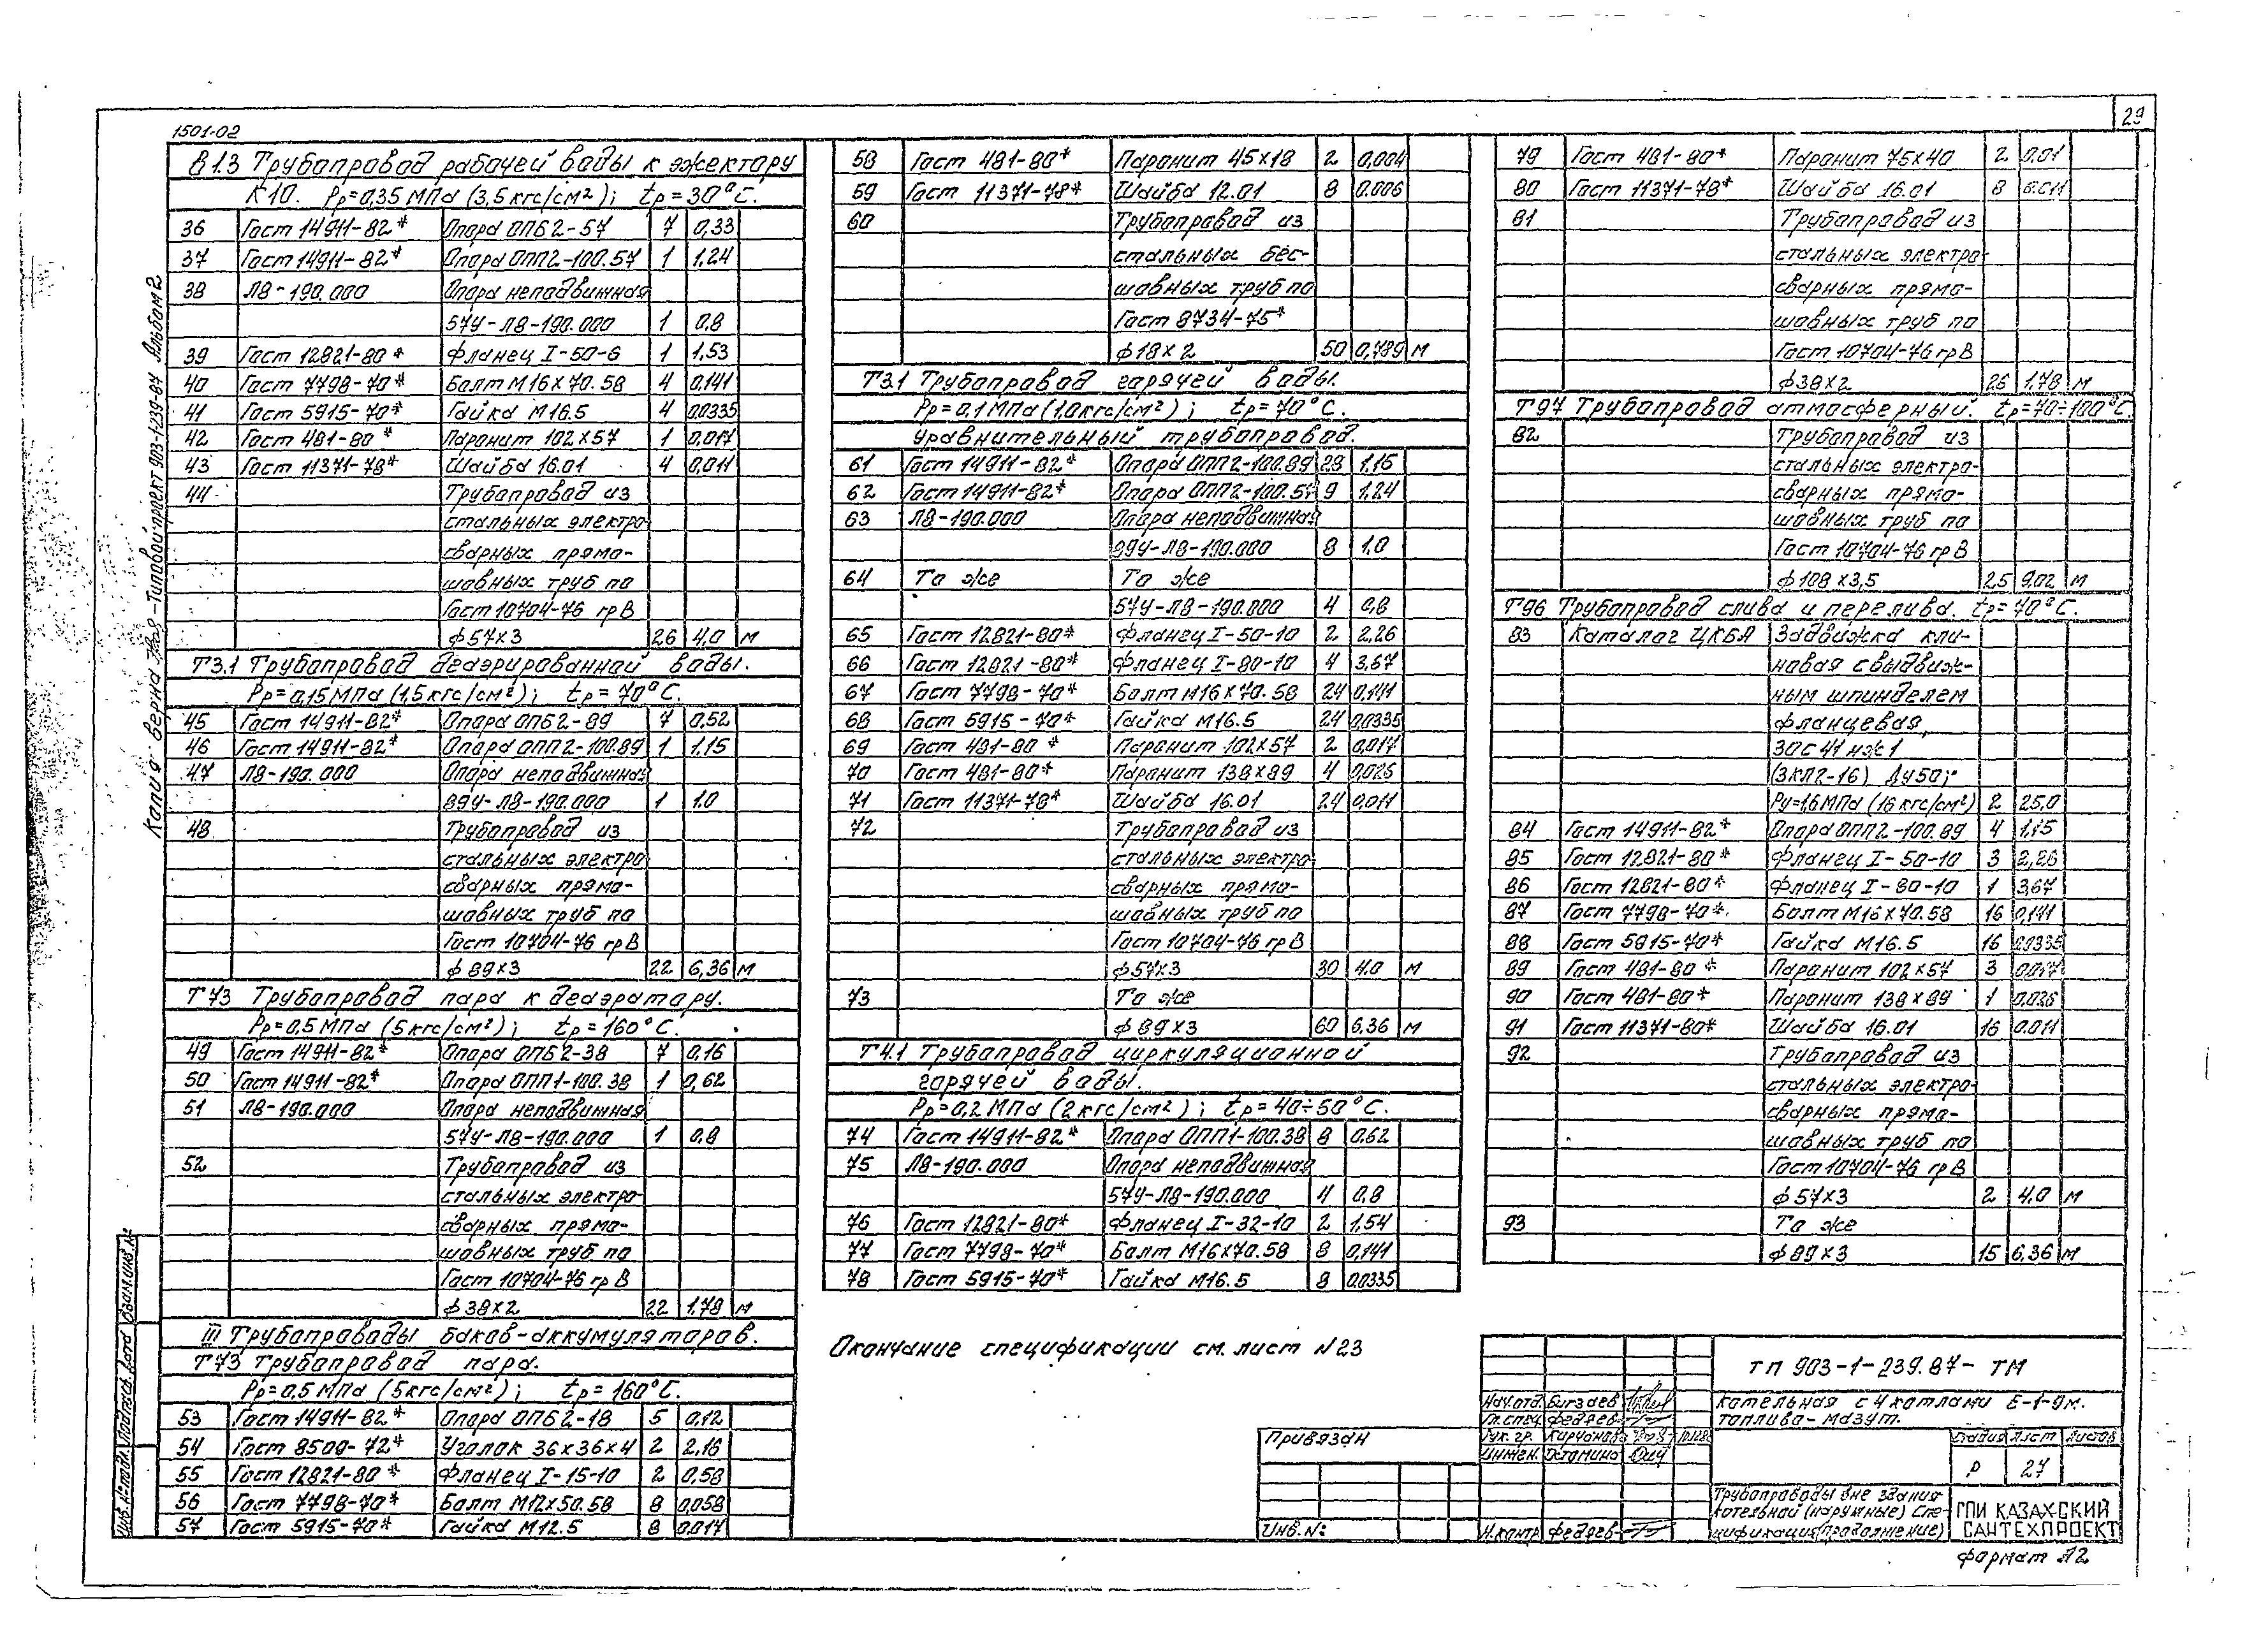 29
1501-02
В1.3 Трубопровод рабочей воды к эжектору
К10. Рр=0,35 МПа (3,5 кгс/см²); tр=30°С.
36 Гост 14911-82* Опора ОПБ2-57 7 0,33
37 Гост 14911-82* Опора ОПП2-100.57 1 1,24
38 Л8-190.000 Опора неподвижная
57У-Л8-190.000 1 0,8
39 Гост 12821-80* Фланец I-50-6 1 1,53
40 Гост 7798-70* Болт М16х70.58 4 0,141
41 Гост 5915-70* Гайка М16.5 4 0,0335
42 Гост 481-80* Паронит 102х57 1 0,017
43 Гост 11371-78* Шайба 16.01 4 0,011
44 Трубопровод из
стальных электро-
сварных прямо-
шовных труб по
Гост 10704-76 гр В
ф57х3 26 4,0 м
Т3.1 Трубопровод деаэрированной воды.
Рр=0,15 МПа (1,5 кгс/см²); tр=70°С.
45 Гост 14911-82* Опора ОПБ2-89 7 0,52
46 Гост 14911-82* Опора ОПП2-100.89 1 1,15
47 Л8-190.000 Опора неподвижная
89У-Л8-190.000 1 1,0
48 Трубопровод из
стальных электро
сварных прямо-
шовных труб по
Гост 10704-76 гр В
ф89х3 22 6,36 м
Т73 Трубопровод пара к деаэратору.
Рр=0,5 МПа (5 кгс/см²); tр=160°С.
49 Гост 14911-82* Опора ОПБ2-38 7 0,16
50 Гост 14911-82* Опора ОПП1-100.38 1 0,62
51 Л8-190.000 Опора неподвижная
57У-Л8-190.000 1 0,8
52 Трубопровод из
стальных электро-
сварных прямо-
шовных труб по
Гост 10704-76 гр В
ф38х2 22 1,78 м
III Трубопроводы баков-аккумуляторов.
Т73 Трубопровод пара.
Рр=0,5 МПа (5 кгс/см²); tр=160°С.
53 Гост 14911-82* Опора ОПБ2-18 5 0,12
54 Гост 8509-72* Уголок 36х36х4 2 2,16
55 Гост 12821-80* Фланец I-15-10 2 0,58
56 Гост 7798-70* Болт М12х50.58 8 0,058
57 Гост 5915-70* Гайка М12.5 8 0,017
58 Гост 481-80* Паронит 45х18 2 0,004
59 Гост 11371-78* Шайба 12.01 8 0,006
60 Трубопровод из
стальных бес-
шовных труб по
Гост 8734-75*
ф18х2 50 0,789 м
Т3.1 Трубопровод горячей воды.
Рр=0,1 МПа (1,0 кгс/см²); tр=70°С.
Уравнительный трубопровод.
61 Гост 14911-82* Опора ОПП2-100.89 23 1,15
62 Гост 14911-82* Опора ОПП2-100.57 9 1,24
63 Л8-190.000 Опора неподвижная
89У-Л8-190.000 8 1,0
64 То же То же
57У-Л8-190.000 4 0,8
65 Гост 12821-80* Фланец I-50-10 2 2,26
66 Гост 12821-80* Фланец I-80-10 4 3,67
67 Гост 7798-70* Болт М16х70.58 24 0,141
68 Гост 5915-70* Гайка М16.5 24 0,0335
69 Гост 481-80* Паронит 102х57 2 0,017
70 Гост 481-80* Паронит 138х89 4 0,026
71 Гост 11371-78* Шайба 16.01 24 0,011
72 Трубопровод из
стальных электро
сварных прямо-
шовных труб по
Гост 10704-76 гр В
ф57х3 30 4,0 м
73 То же
ф89х3 60 6,36 м
Т4.1 Трубопровод циркуляционной
горячей воды.
Рр=0,2 МПа (2 кгс/см²); tр=40÷50°С.
74 Гост 14911-82* Опора ОПП1-100.38 8 0,62
75 Л8-190.000 Опора неподвижная
57У-Л8-190.000 4 0,8
76 Гост 12821-80* Фланец I-32-10 2 1,54
77 Гост 7798-70* Болт М16х70.58 8 0,141
78 Гост 5915-70* Гайка М16.5 8 0,0335
79 Гост 481-80* Паронит 75х40 2 0,01
80 Гост 11371-78* Шайба 16.01 8 0,011
81 Трубопровод из
стальных электро-
сварных прямо-
шовных труб по
Гост 10704-76 гр В
ф38х2 26 1,78 м
Т97 Трубопровод атмосферный. tр=70÷100°С.
82 Трубопровод из
стальных электро-
сварных прямо-
шовных труб по
Гост 10704-76 гр В
ф108х3,5 25 9,02 м
Т96 Трубопровод слива и перелива. tр=70°С.
83 Каталог ЦКБА Задвижка кли-
новая с выдвиж-
ным шпинделем
фланцевая,
30с41нж1
(ЗКЛ2-16) Ду50;
Ру=1,6 МПа (16 кгс/см²) 2 25,0
84 Гост 14911-82* Опора ОПП2-100.89 4 1,15
85 Гост 12821-80* Фланец I-50-10 3 2,26
86 Гост 12821-80* Фланец I-80-10 1 3,67
87 Гост 7798-70*. Болт М16х70.58 16 0,141
88 Гост 5915-70* Гайка М16.5 16 0,0335
89 Гост 481-80* Паронит 102х57 3 0,017
90 Гост 481-80* Паронит 138х89 1 0,026
91 Гост 11371-80* Шайба 16.01 16 0,011
92 Трубопровод из
стальных электро-
сварных прямо-
шовных труб по
Гост 10704-76 гр В
ф57х3 2 4,0 м
93 То же
ф89х3 15 6,36 м
Окончание спецификации см. лист N23
ТП 903-1-239.87-ТМ
Котельная с 4 котлами Е-1-9м.
Топливо-мазут.
Нач.отд.
Гл.спец. Федяев
Рук.гр.
Инжен.
Н.контр. Федяев
Привязан
Инв.№:
Стадия Лист Листов
Р 27
Трубопроводы вне здания
котельной (наружные) Спе-
цификация (продолжение)
ГПИ КАЗАХСКИЙ
САНТЕХПРОЕКТ
Формат А2
Копия верна
Типовой проект 903-1-239-87 Альбом 2
Инв.№подл. Подпись и дата Взам.инв.№